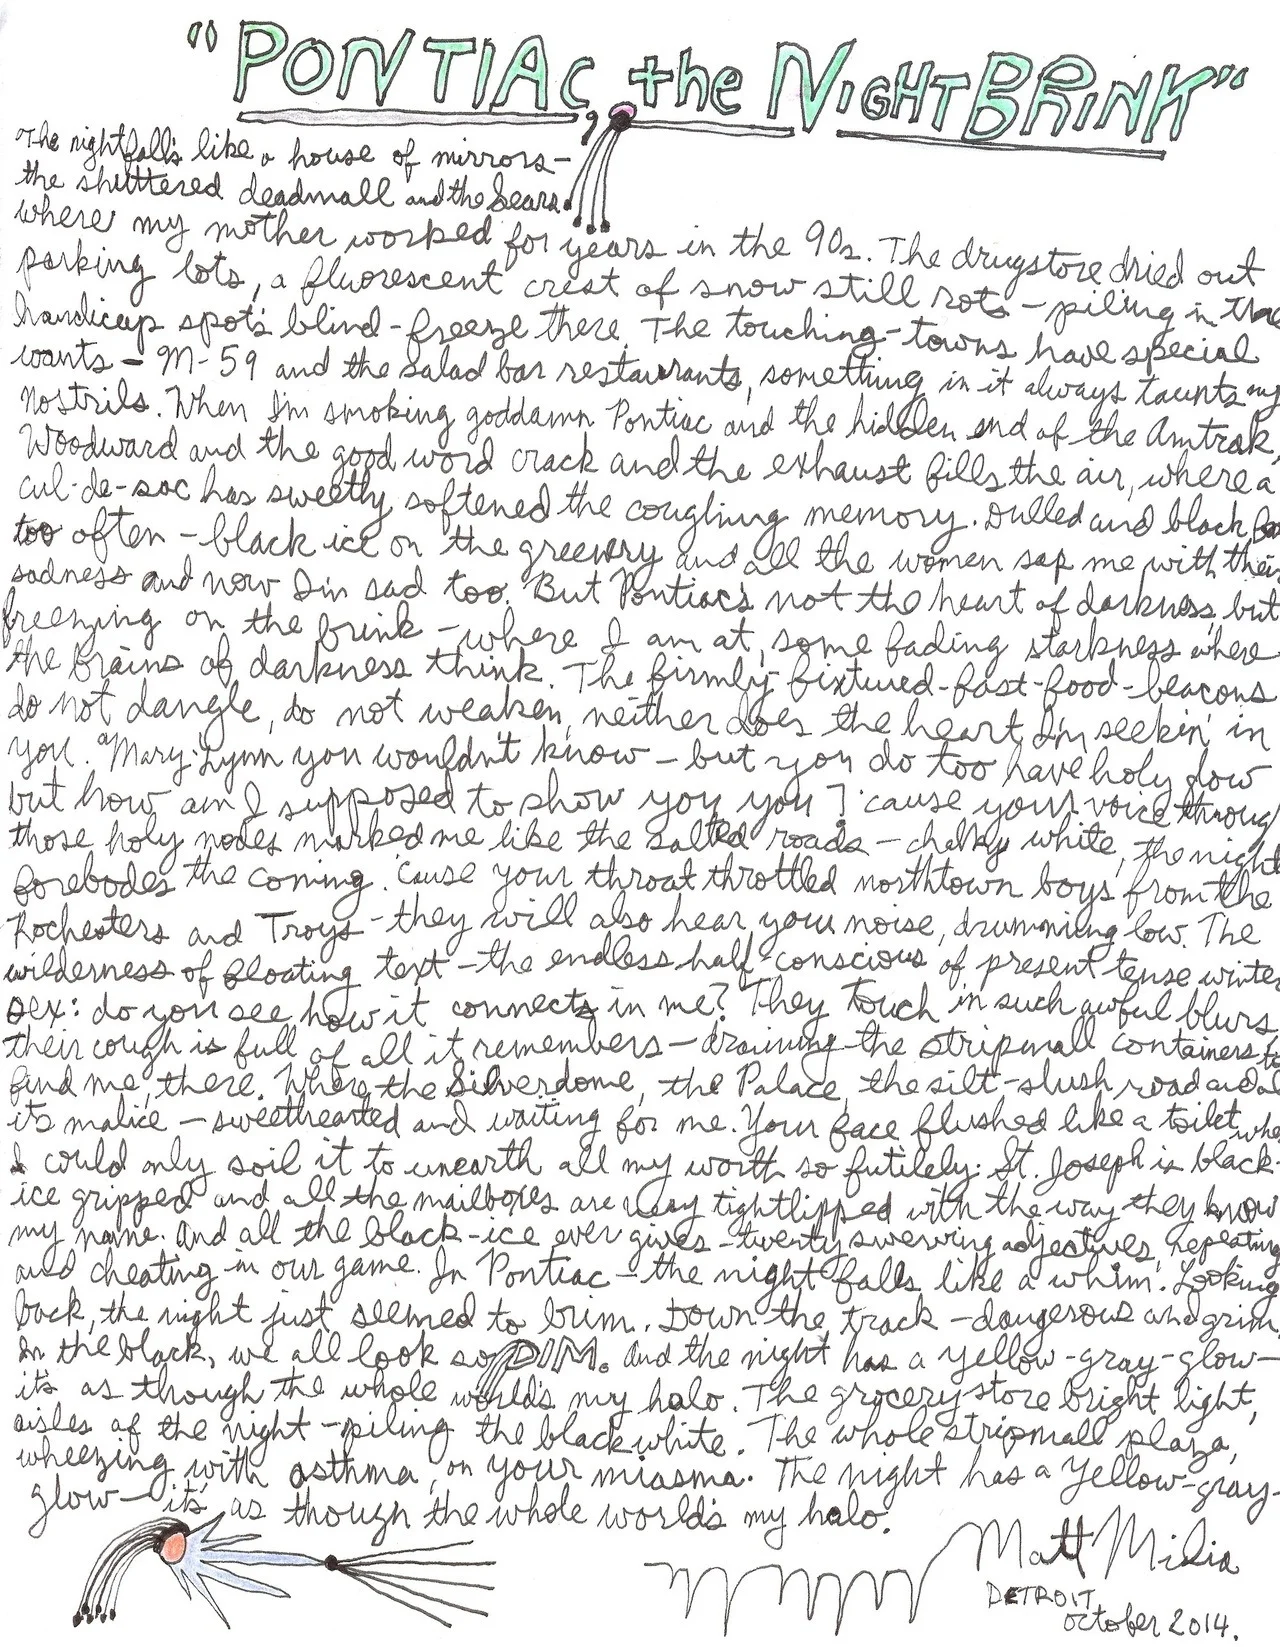 "PONTIAC, the NIGHTBRINK"
The nightfall's like a house of mirrors—
the shuttered deadmall and the Sears
where my mother worked for years in the 90s. The drugstore dried out
parking lots, a fluorescent crest of snow still rots — piling in the
handicap spots blind-freeze there. The touching-towns have special
wants — M-59 and the salad bar restaurants, something in it always taunts my
nostrils. When I'm smoking goddamn Pontiac and the hidden end of the Amtrak,
Woodward and the good word crack and the exhaust fills the air, where a
cul-de-sac has sweetly softened the coughing memory. Dulled and black far
too often — black ice on the greenery and all the women sap me with their
sadness and now I'm sad too. But Pontiac's not the heart of darkness, but
freezing on the brink — where I am at, some fading starkness where
the brains of darkness think. The firmly-fixtured-fast-food-beacons
do not dangle, do not weaken, neither does the heart I'm seekin' in
you. Mary-Lynn you wouldn't know — but you do too have holy glow
but how am I supposed to show you you? 'cause your voice through
those holy nodes marked me like the salted roads — chalky white, the night
forebodes the coming. 'cause your throat throttled northtown boys from the
Rochesters and Troys — they will also hear your noise, drumming low. The
wilderness of floating text — the endless half-conscious of present tense winter
sex: do you see how it connects in me? They touch in such awful blurs,
their cough is full of all it remembers — draining the stripmall containers to
find me, there. Where the Silverdome, the Palace, the silt-slush road and all
its malice — sweethearted and waiting for me. Your face flushed like a toilet, where
I could only soil it to unearth all my worth so futilely: St. Joseph is black-
ice gripped and all the mailboxes are very tightlipped with the way they know
my name. And all the black-ice ever gives — twenty swerving adjectives, repeating
and cheating in our game. In Pontiac — the night falls like a whim. Looking
back, the night just seemed to brim. Down the track — dangerous and grim.
In the black, we all look so DIM. And the night has a yellow-gray-glow—
it's as though the whole world's my halo. The grocery store bright light,
aisles of the night — piling the black white. The whole stripmall plaza,
wheezing with asthma, on your miasma. The night has a yellow-gray-
glow — it's as though the whole world's my halo.
Matt Milia
DETROIT,
October 2014.